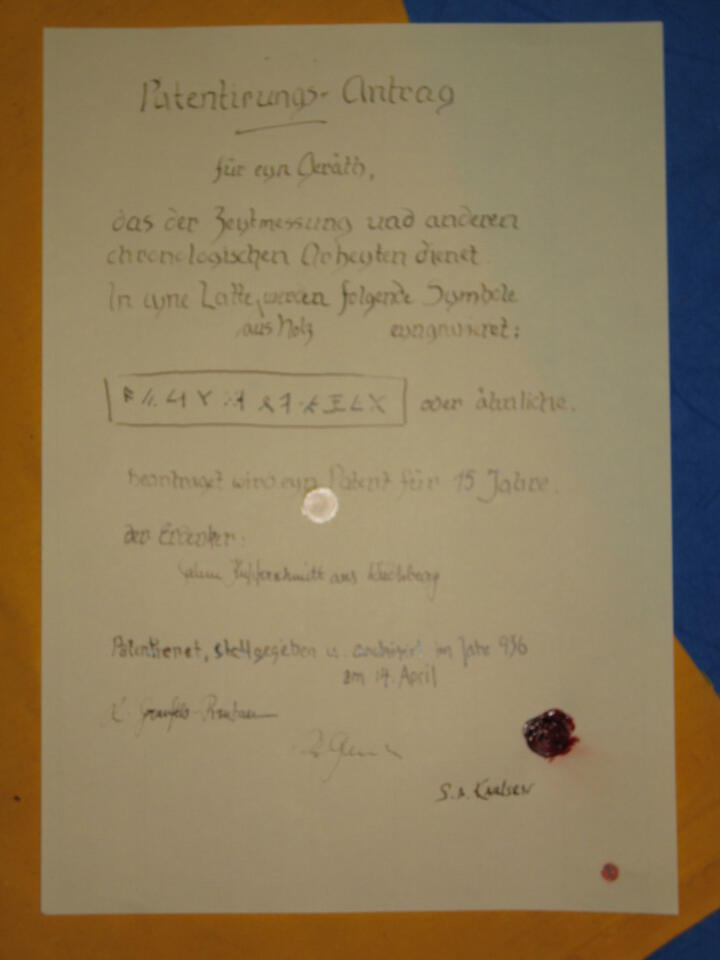 Patentirungs-Antrag
für eyn Geräth,
das der Zeytmessung und anderen
chronologischen Arbeyten dienet
In eyne Latte werden folgende Symbole
aus Holz eyngravieret:
oder ähnliche.
beantraget wird eyn Patent für 15 Jahre.
der Erdenker:
aus
Patentieret, stattgegeben u. archivirt im Jahr 936
am 14. April
S. A. Karlsen